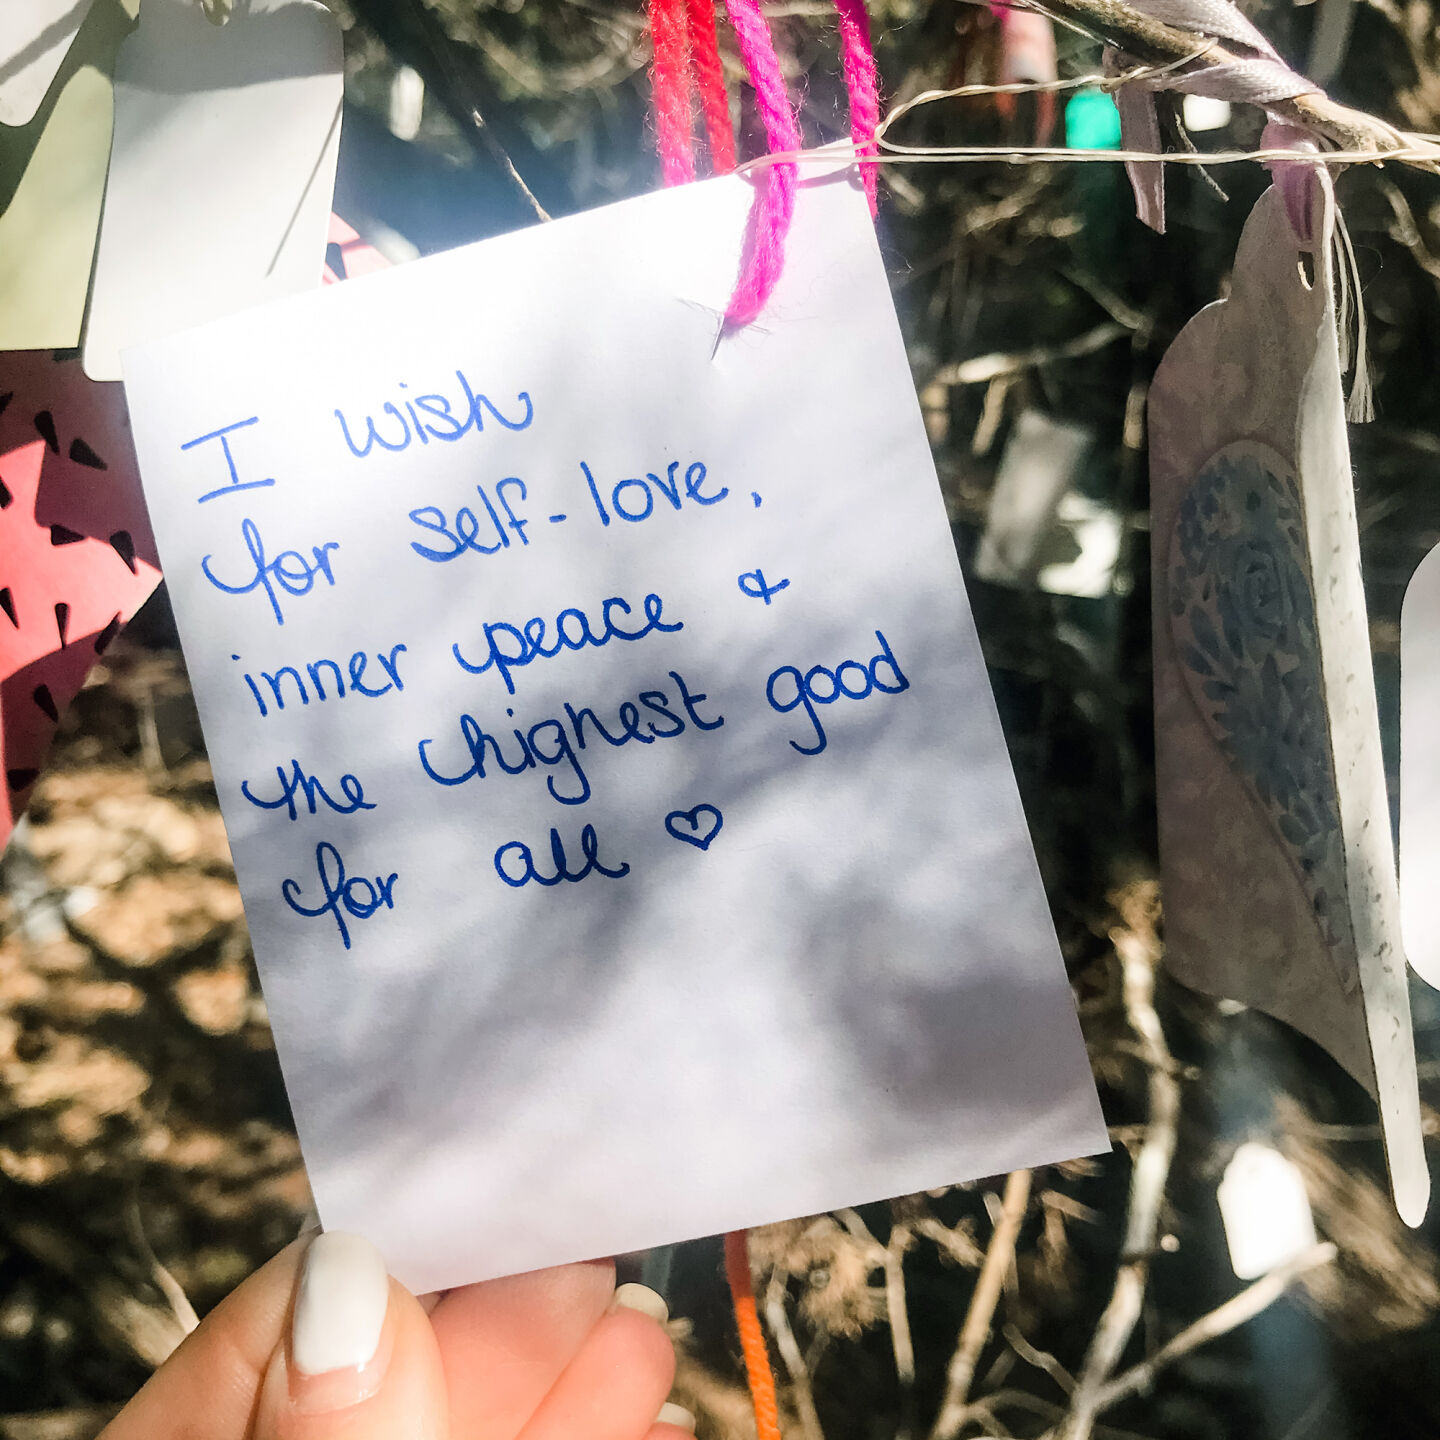 I wish
for self-love,
inner peace &
the highest good
for all ♡